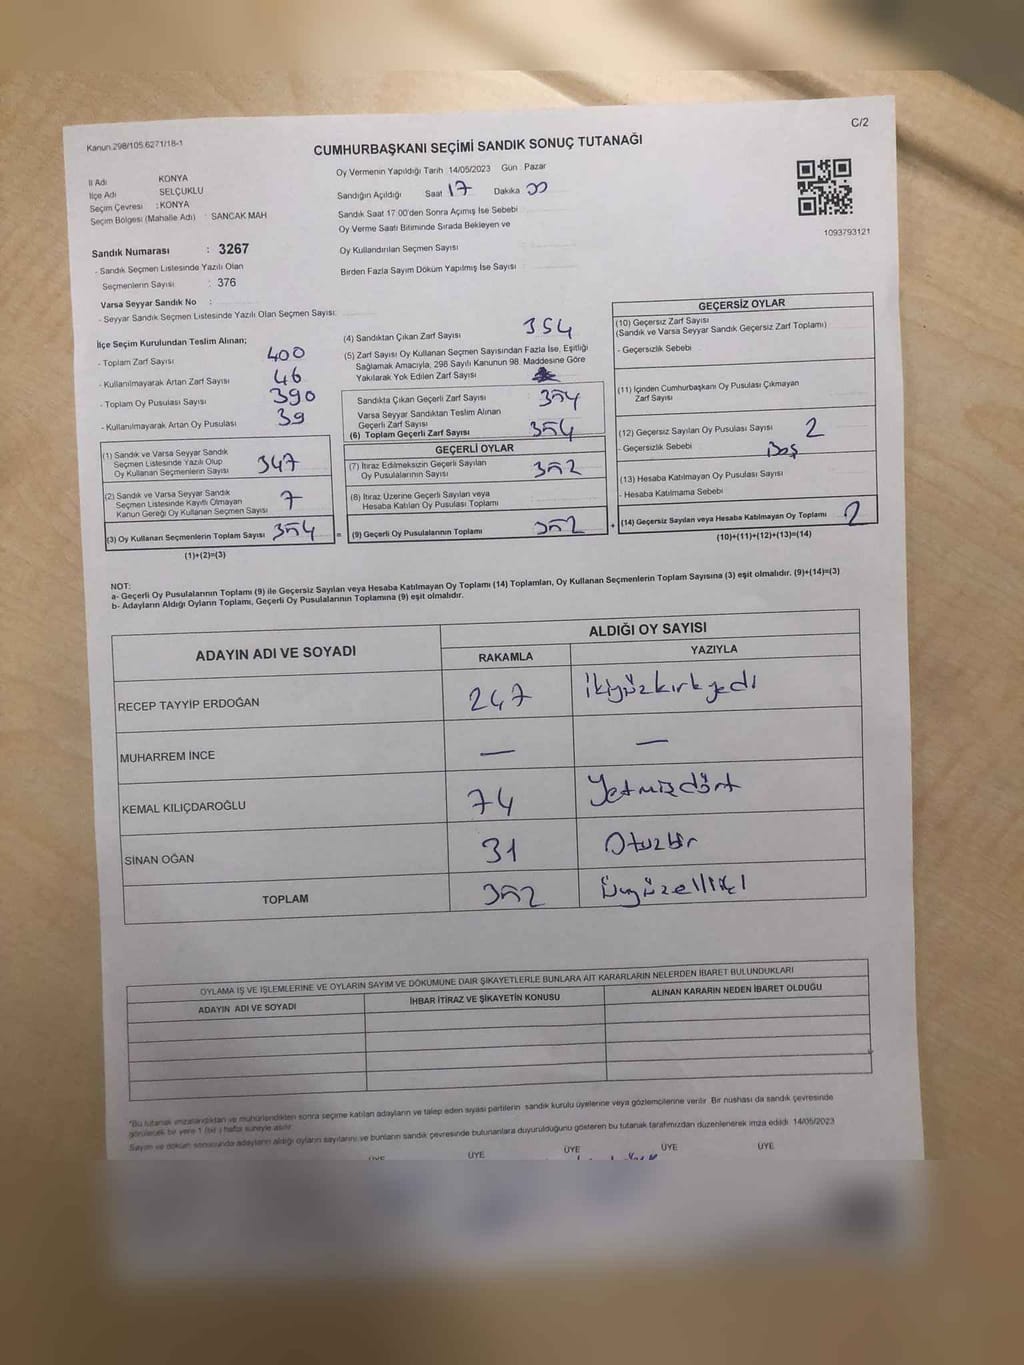 C/2
Kanun.298/105.6271/18-1
CUMHURBAŞKANI SEÇİMİ SANDIK SONUÇ TUTANAĞI
İl Adı KONYA
İlçe Adı SELÇUKLU
Seçim Çevresi : KONYA
Seçim Bölgesi (Mahalle Adı) : SANCAK MAH
Oy Vermenin Yapıldığı Tarih :14/05/2023 Gün : Pazar
Sandığın Açıldığı Saat 17 Dakika 00
Sandık Saat 17:00'den Sonra Açımış İse Sebebi
Oy Verme Saati Bitiminde Sırada Bekleyen ve
Oy Kullandırılan Seçmen Sayısı
Birden Fazla Sayım Döküm Yapılmış İse Sayısı
1093793121
Sandık Numarası : 3267
- Sandık Seçmen Listesinde Yazılı Olan
Seçmenlerin Sayısı : 376
Varsa Seyyar Sandık No :
- Seyyar Sandık Seçmen Listesinde Yazılı Olan Seçmen Sayısı:
İlçe Seçim Kurulundan Teslim Alınan;
- Toplam Zarf Sayısı 400
- Kullanılmayarak Artan Zarf Sayısı 46
- Toplam Oy Pusulası Sayısı 390
- Kullanılmayarak Artan Oy Pusulası 39
(1) Sandık ve Varsa Seyyar Sandık
Seçmen Listesinde Yazılı Olup
Oy Kullanan Seçmenlerin Sayısı 347
(2) Sandık ve Varsa Seyyar Sandık
Seçmen Listesinde Kayıtlı Olmayan
Kanun Gereği Oy Kullanan Seçmen Sayısı 7
(3) Oy Kullanan Seçmenlerin Toplam Sayısı 354 =
(1)+(2)=(3)
(4) Sandıktan Çıkan Zarf Sayısı 354
(5) Zarf Sayısı Oy Kullanan Seçmen Sayısından Fazla İse, Eşitliği
Sağlamak Amacıyla, 298 Sayılı Kanunun 98. Maddesine Göre
Yakılarak Yok Edilen Zarf Sayısı
Sandıkta Çıkan Geçerli Zarf Sayısı 354
Varsa Seyyar Sandıktan Teslim Alınan
Geçerli Zarf Sayısı
(6) Toplam Geçerli Zarf Sayısı 354
GEÇERLİ OYLAR
(7) İtiraz Edilmeksizin Geçerli Sayılan
Oy Pusulalarının Sayısı 352
(8) İtiraz Üzerine Geçerli Sayılan veya
Hesaba Katılan Oy Pusulası Toplamı
(9) Geçerli Oy Pusulalarının Toplamı 352 +
GEÇERSİZ OYLAR
(10) Geçersiz Zarf Sayısı
(Sandık ve Varsa Seyyar Sandık Geçersiz Zarf Toplamı)
- Geçersizlik Sebebi
(11) İçinden Cumhurbaşkanı Oy Pusulası Çıkmayan
Zarf Sayısı
(12) Geçersiz Sayılan Oy Pusulası Sayısı 2
- Geçersizlik Sebebi Boş
(13) Hesaba Katılmayan Oy Pusulası Sayısı
- Hesaba Katılmama Sebebi
(14) Geçersiz Sayılan veya Hesaba Katılmayan Oy Toplamı 2
(10)+(11)+(12)+(13)=(14)
NOT:
a- Geçerli Oy Pusulalarının Toplamı (9) ile Geçersiz Sayılan veya Hesaba Katılmayan Oy Toplamı (14) Toplamları, Oy Kullanan Seçmenlerin Toplam Sayısına (3) eşit olmalıdır. (9)+(14)=(3)
b- Adayların Aldığı Oyların Toplamı, Geçerli Oy Pusulalarının Toplamına (9) eşit olmalıdır.
ADAYIN ADI VE SOYADI ALDIĞI OY SAYISI
RAKAMLA YAZIYLA
RECEP TAYYİP ERDOĞAN 247 İkiyüzkırkyedi
MUHARREM İNCE — —
KEMAL KILIÇDAROĞLU 74 Yetmişdört
SİNAN OĞAN 31 Otuzbir
TOPLAM 352 Üçyüzelliiki
OYLAMA İŞ VE İŞLEMLERİNE VE OYLARIN SAYIM VE DÖKÜMÜNE DAİR ŞİKAYETLERLE BUNLARA AİT KARARLARIN NELERDEN İBARET BULUNDUKLARI
ADAYIN ADI VE SOYADI İHBAR İTİRAZ VE ŞİKAYETİN KONUSU ALINAN KARARIN NEDEN İBARET OLDUĞU
"Bu tutanak imzalandıktan ve mühürlendikten sonra seçime katılan adayların ve talep eden siyasi partilerin sandık kurulu üyelerine veya gözlemcilerine verilir. Bir nüshası da sandık çevresinde
görülecek bir yere 1 (bir ) hafta süreyle asılır.
Sayım ve döküm sonucunda adayların aldığı oyların sayılarını ve bunların sandık çevresinde bulunanlara duyurulduğunu gösteren bu tutanak tarafımızdan düzenlenerek imza edildi. 14/05/2023
ÜYE ÜYE ÜYE ÜYE ÜYE